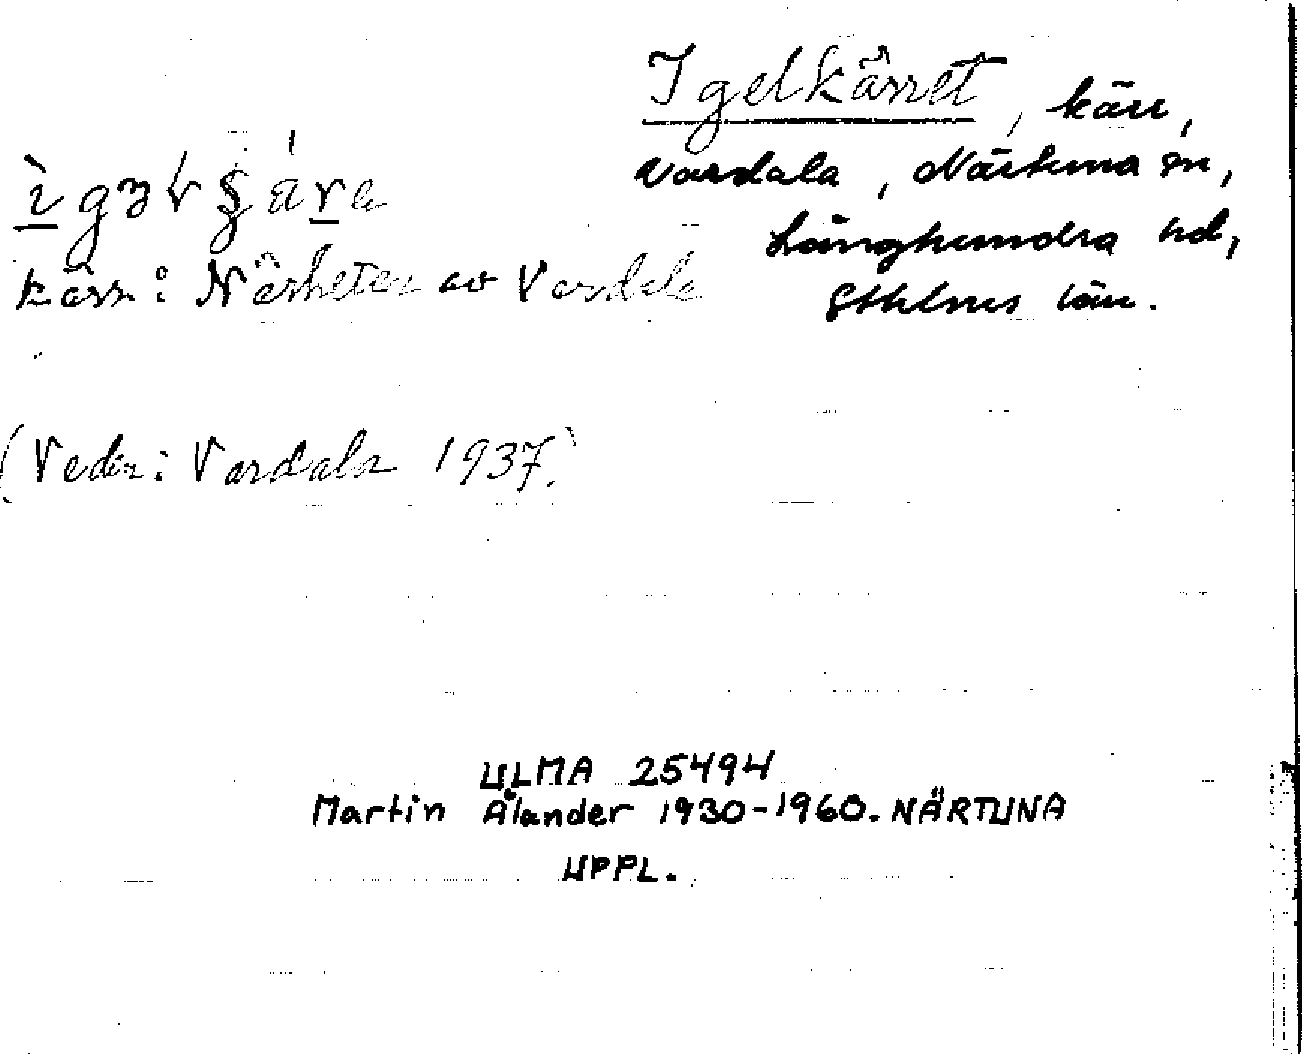 Igelkärret, kärr,
Vardala, Närtuna sn,
Långhundra hd,
Sthlms län.
kärr i Närheten av Vardala
(Veden: Vardala 1937.)
ULMA 25494
Martin Ålander 1930-1960. NÄRTUNA
UPPL.